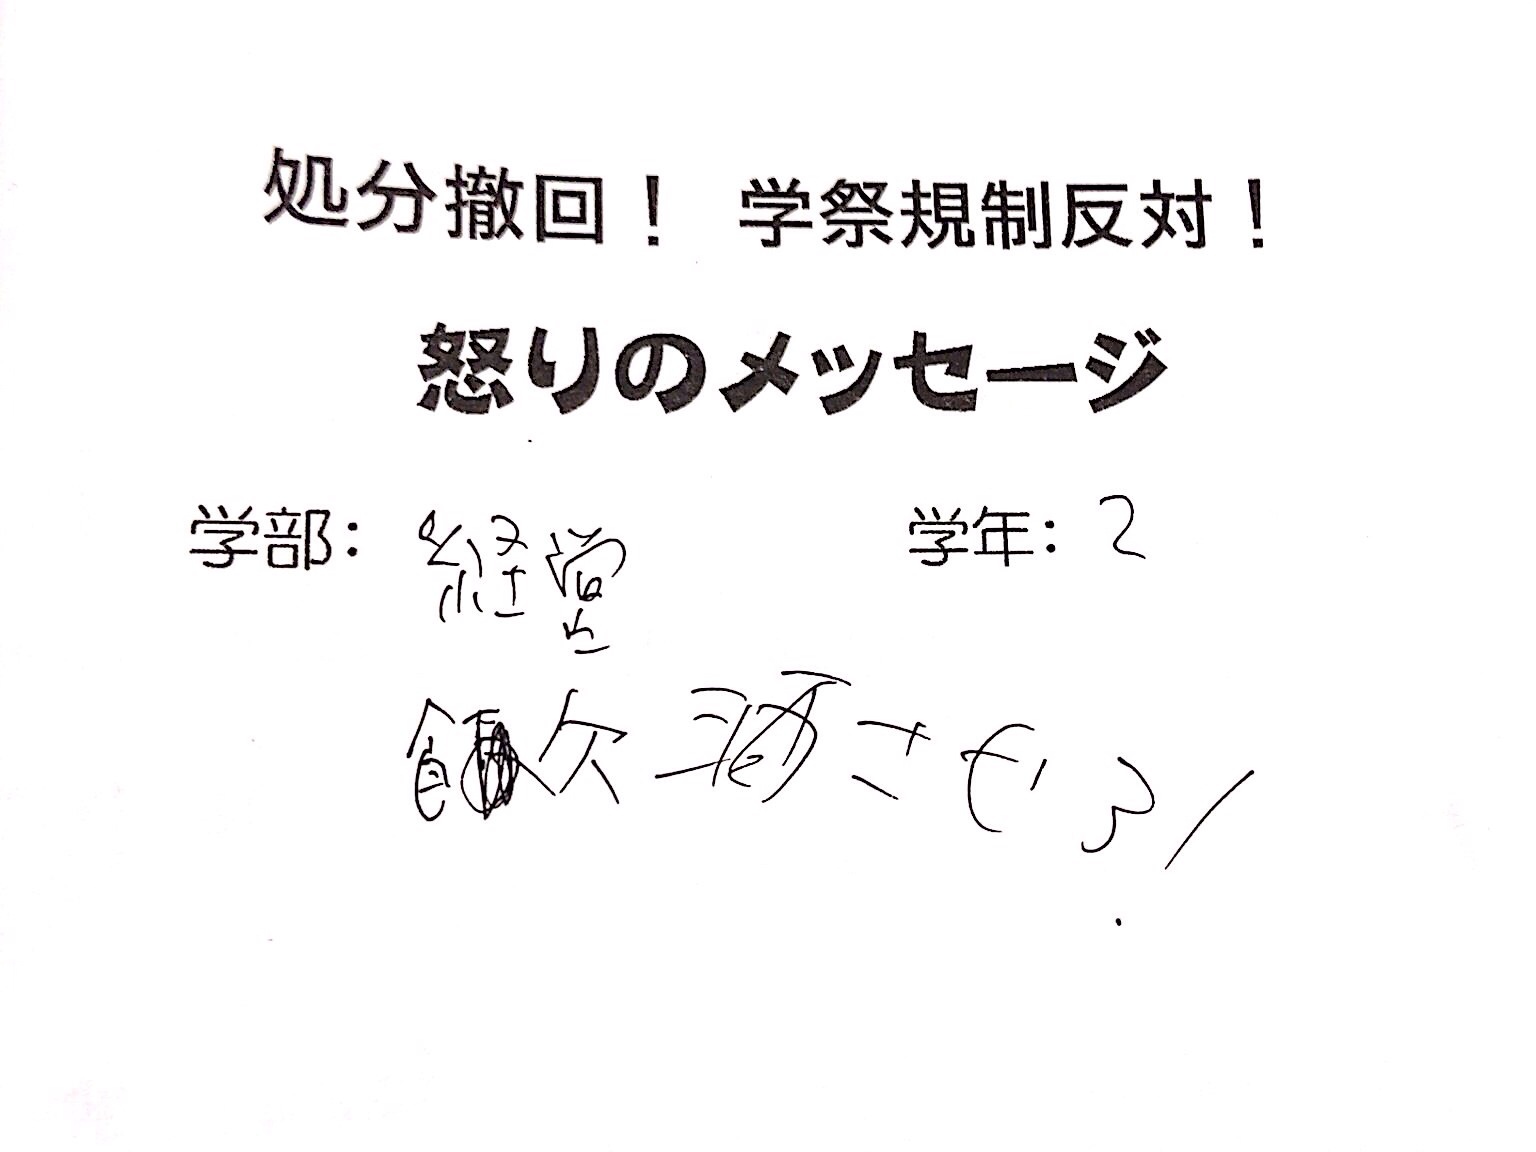 処分撤回! 学祭規制反対!
怒りのメッセージ
学部: 経営 学年: 2
飲酒させろ!